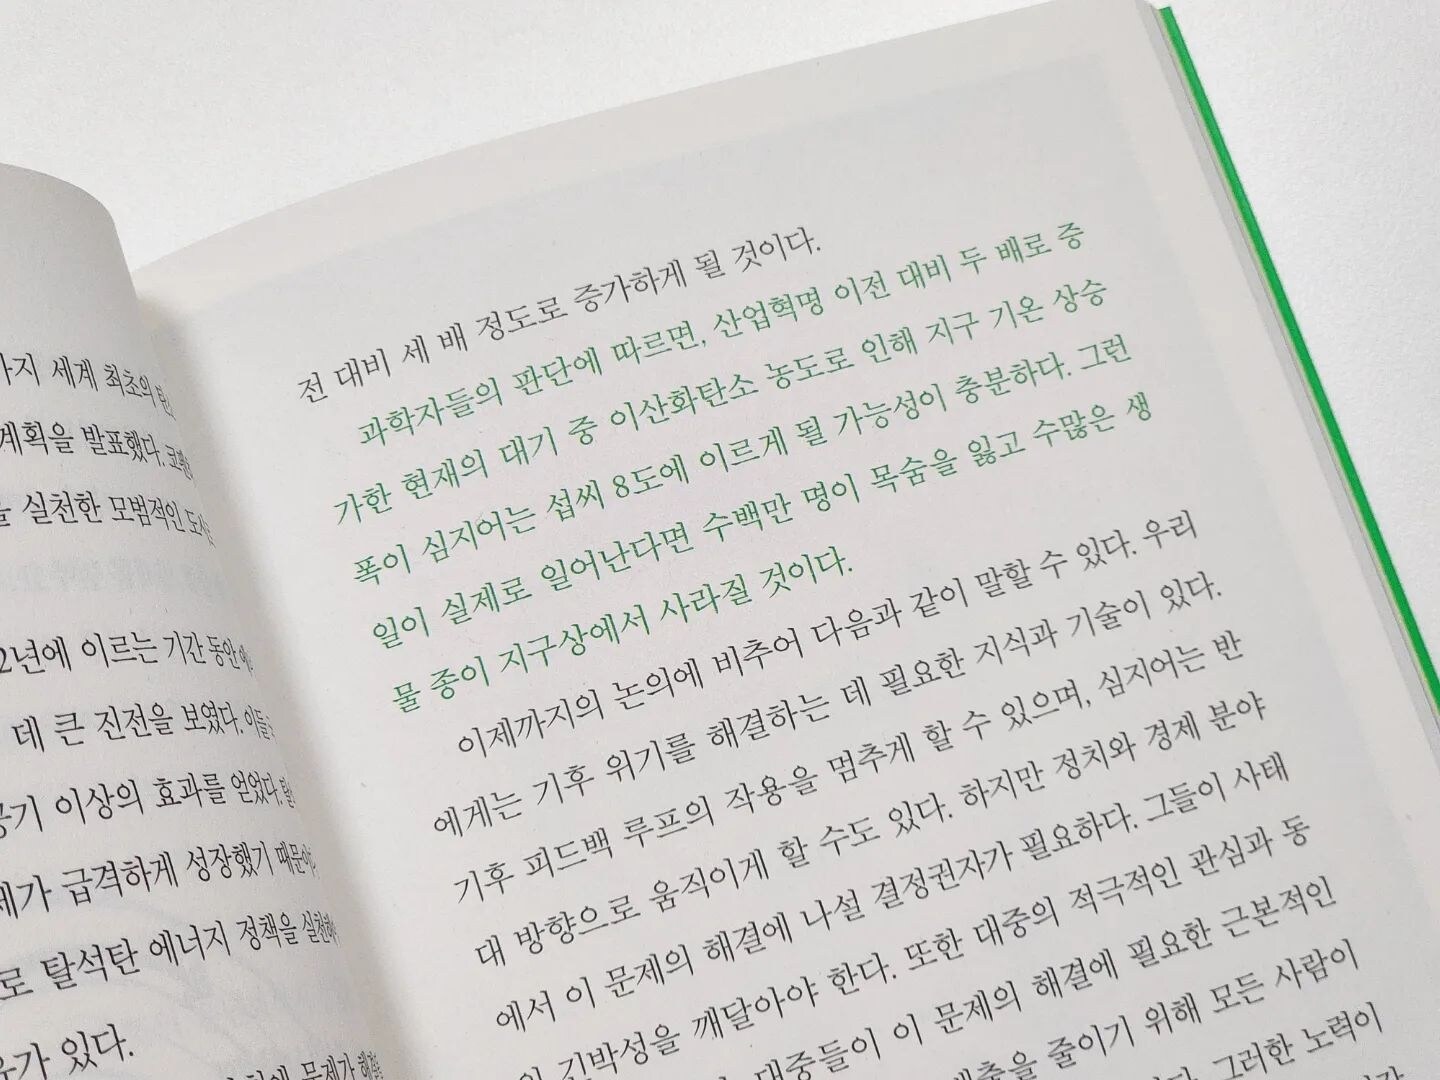 세계 최초의
계획을 발표했다.
실천한 모범적인
2년에 이르는 기간 동안
데 큰 진전을 보였다.
이상의 효과를 얻었다.
급격하게 성장했기
탈석탄 에너지 정책을
있다.
문제가
전 대비 세 배 정도로 증가하게 될 것이다.
과학자들의 판단에 따르면, 산업혁명 이전 대비 두 배로 증
가한 현재의 대기 중 이산화탄소 농도로 인해 지구 기온 상승
폭이 심지어는 섭씨 8도에 이르게 될 가능성이 충분하다. 그런
일이 실제로 일어난다면 수백만 명이 목숨을 잃고 수많은 생
물 종이 지구상에서 사라질 것이다.
이제까지의 논의에 비추어 다음과 같이 말할 수 있다. 우리
에게는 기후 위기를 해결하는 데 필요한 지식과 기술이 있다.
기후 피드백 루프의 작용을 멈추게 할 수 있으며, 심지어는 반
대 방향으로 움직이게 할 수도 있다. 하지만 정치와 경제 분야
에서 이 문제의 해결에 나설 결정권자가 필요하다. 그들이 사태
의 긴박성을 깨달아야 한다. 또한 대중의 적극적인 관심과 동
대중들이 이 문제의 해결에 필요한 근본적인
줄이기 위해 모든 사람이
그러한 노력이